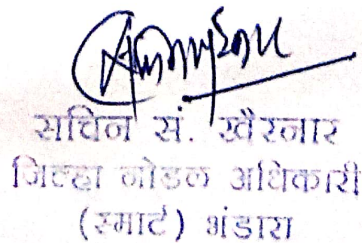 सचिन सं. खैरनार
जिल्हा नोडल अधिकारी
(स्मार्ट) भंडारा